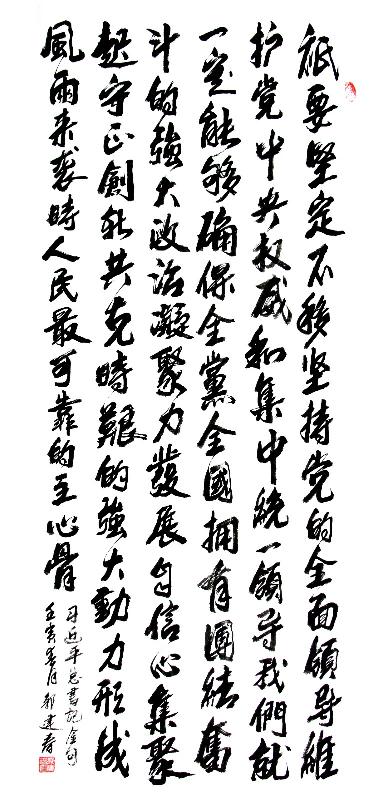 祇要堅定不移坚持党的全面領导維
护党中央权威和集中統一領导我們就
一定能够确保全黨全國拥有團結奮
斗的強大政治凝聚力發展自信心集聚
起守正創新共克時艱的強大動力形成
風雨来襲時人民最可靠的主心骨
习近平总書記金句
壬寅春月